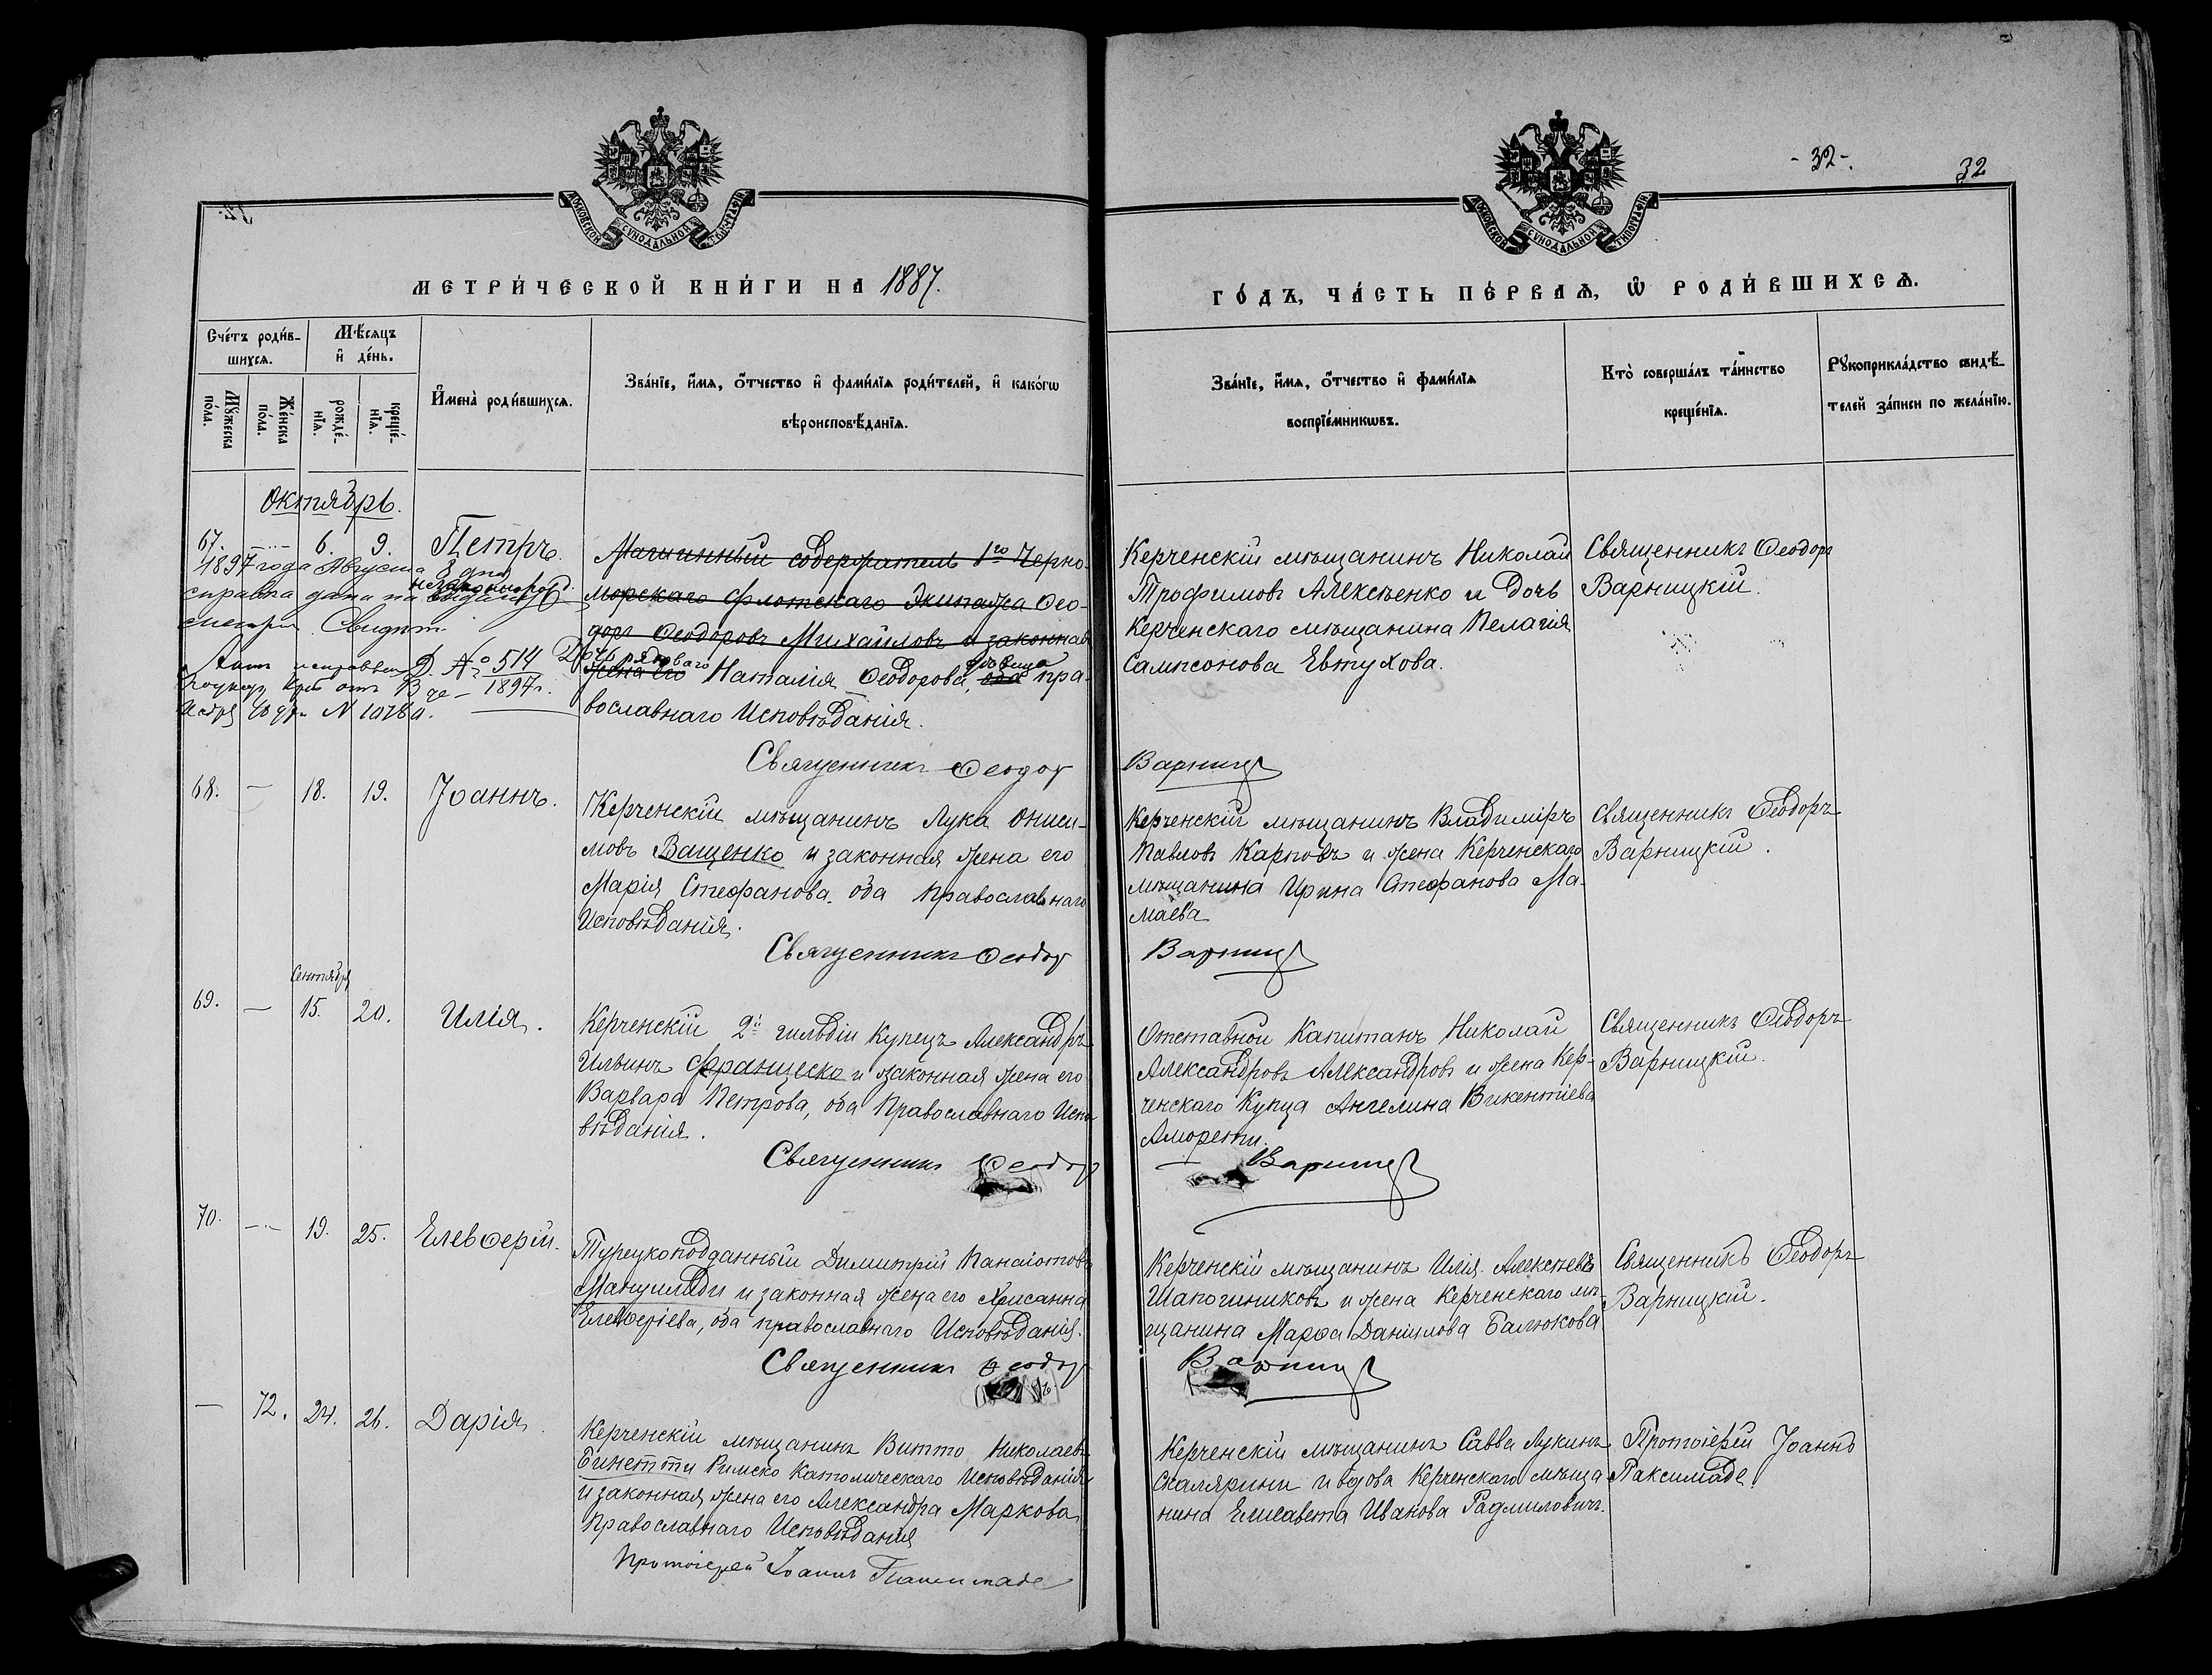 - 32 -.
32
МОСКОВСКОЙ СѴНОДАЛЬНОЙ ТИПОГРАФІИ
МОСКОВСКОЙ СѴНОДАЛЬНОЙ ТИПОГРАФІИ
МЕТРИ́ЧЕСКОЙ КНИ́ГИ НА 1887.
ГО́ДЪ, ЧА́СТЬ ПЕ́РВАѦ, Ѿ РОДИ́ВШИХСѦ.
Сче́тъ роди́в-
шихсѧ.
Мѣ́сѧцъ
и҆ де́нь.
Мꙋ́жеска по́ла.
Же́нска по́ла.
рожде́-нїѧ.
креще́-нїѧ.
И҆мена̀ роди́вшихсѧ.
Зва́нїе, и҆́мѧ, ѻ҆́тчество и҆ фами́лїѧ роди́телей, и҆ како́гѡ
вѣроисповѣ́данїѧ.
Зва́нїе, и҆́мѧ, ѻ҆́тчество и҆ фами́лїѧ
воспрїе́мникѡвъ.
Кто̀ соверша́лъ та́инство
креще́нїѧ.
Рꙋкоприкла́дство свидѣ́-
телей за́писи по жела́нїю.
Октябрь.
67. — 6. 9. Петръ.
1897 года Августа 8 дня
справка дана на
Свидѣт.
Д. № 514
1897 г.
№ 10280.
Магинный содержатель 1го Черно-
морскаго флотскаго Экипажа Ѳео-
доръ Ѳеодоровъ Михайловъ и законная
Дочь рядоваго
жена его Наталія Ѳеодорова, девица оба пра-
вославнаго Исповѣданія.
Священникъ Ѳеодор
Керченскій мѣщанинъ Николай
Трофимовъ Алексѣенко и дочь
Керченскаго мѣщанина Пелагія
Сампсонова Евтухова.
Варниц
Священникъ Ѳеодоръ
Варницкій.
68. — 18. 19. Іоаннъ.
Керченскій мѣщанинъ Лука Ониси-
мовъ Ващенко и законная жена его
Марія Стефанова, оба Православнаго
Исповѣданія.
Священникъ Ѳеодор
Керченскій мѣщанинъ Владиміръ
Павловъ Карповъ и жена Керченскаго
мѣщанина Ирина Стефанова Ма-
маева
Варниц
Священникъ Ѳеодоръ
Варницкій.
Сентября
69. — 15. 20. Илія.
Керченскій 2й гильдіи купецъ Александръ
Ильинъ Франческо и законная жена его
Варвара Петрова, оба Православнаго Испо
вѣданія.
Священникъ Ѳеодор
Отставной Капитанъ Николай
Александровъ Александровъ и жена Кер-
ченскаго Купца Ангелина Викентіева
Аморети.
Варниц
Священникъ Ѳеодоръ
Варницкій.
70. — 19. 25. Елевѳерій.
Турецкоподданный Димитрій Панаіотовъ
Мануилиди и законная жена его Хрисанна
Елевѳеріева, оба православнаго Исповѣданія.
Священникъ Ѳеодор
Керченскій мѣщанинъ Илія Алексѣевъ
Шапошниковъ и жена Керченскаго мѣ-
щанина Марѳа Даніилова Балюкова
Варниц
Священникъ Ѳеодоръ
Варницкій.
— 72. 24. 26. Дарія.
Керченскій мѣщанинъ Витто Николаевъ
Бинетти Римско Католическаго Исповѣданія
и законная жена его Александра Маркова,
Православнаго Исповѣданія
Протоіерей Іоаннъ Паксимаде
Керченскій мѣщанинъ Савва Лукинъ
Скалярини и вдова Керченскаго мѣща
нина Елисавета Иванова Радмиловичъ.
Протоіерей Іоаннъ
Паксимаде